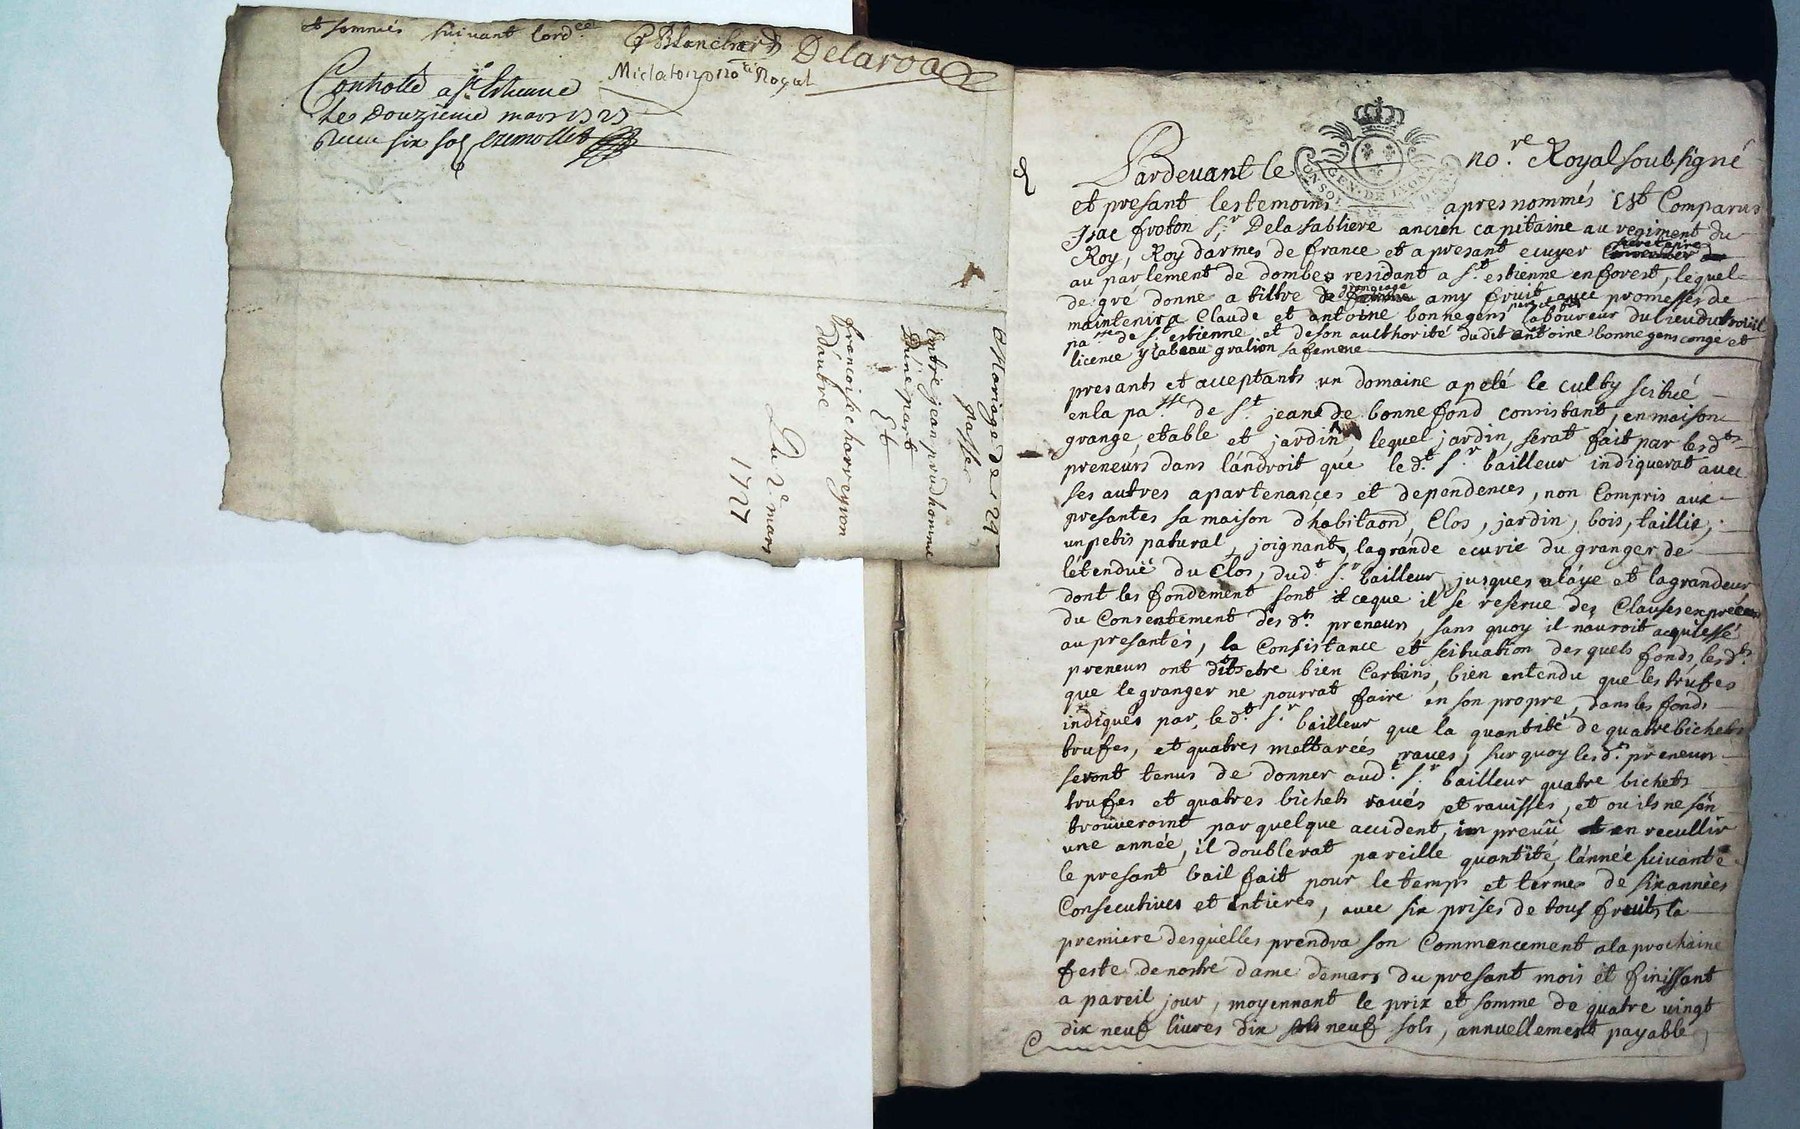 et sommés suivant lord.ce P Blanchard Delaroa
Miclalon no.re Royal
Controllé a S.t Estienne
Les douzieme mars 1727
Receu six sols
Mariage de
passé
Entre jean prudhomme
Dune part
Et
francoise harreynon
Dautre
Du 2.e mars
1727
Pardevant le no.re Royal soubsigné
CONSOL
et presant les temoins apres nommés Est Comparus
Isac froton S.r Delasabliere ancien capitaine au regiment du
Roy, Roy darmes de france et a presant ecuyer secretaire
au parlement de dombes residant a S.t estienne en forest, lequel
de gré donne a tiltre de grangeage amy fruit avec promesses de
maintenir a Claude et antoine bonnegens laboureur du lieu du
pa.sse de S.t estienne et de son authorité dudit antoine bonnegens conge et
licence yzabeau gralion sa femme
presants et acceptants un domaine apelé le culty scitué
en la pa.sse de S.t jean de bonnefond consistant, en maison
grange, etable et jardin, lequel jardin, serat fait par lesd.ts
preneurs dans lándroit que led.t S.r bailleur indiquerat avec
ses autres apartenances et dependences, non Compris aux
presantes sa maison dhabitaon, Clos, jardin, bois, taillis,
un petis patural, joignant, la grande ecurie du granger de
létenduë du Clos, dud.t S.r bailleur, jusques alaye et la grandeur
dont les fondement sont il ce que il se reserve des Clauses expréces
du Consentement des d.ts preneurs, sans quoy il nauroit acquiessé
au presantes, la Consistance et scituation desquels fonds, lesd.ts
preneurs ont dits etre bien Certains, bien entendu que les trufes
que le granger ne pourrat faire en son propre, dans les fonds
indiqués par, led.t S.r bailleur que la quantité de quatre bichets
trufes, et quatres mettarées raves, sur quoy lesd.ts preneurs
seront tenus de donner aud.t S.r bailleur quatre bichets
trufes et quatres bichets raves et ravisses, et ou ils ne sán
trouveroint par quelque accident, imprevü en recullir
une année, il doublerat pareille quantité, lánnée suivante
le presant bail fait pour le temps et termes de six années
Consecutives et entieres, avec six prises de tous fruits la
premiere desquelles prendra son Commencement a la prochaine
feste de nostre dame de mars du presant mois et finissant
a pareil jour, moyennant le prix et somme de quatre vingt
dix neuf livres dix neuf sols, annuellement payable